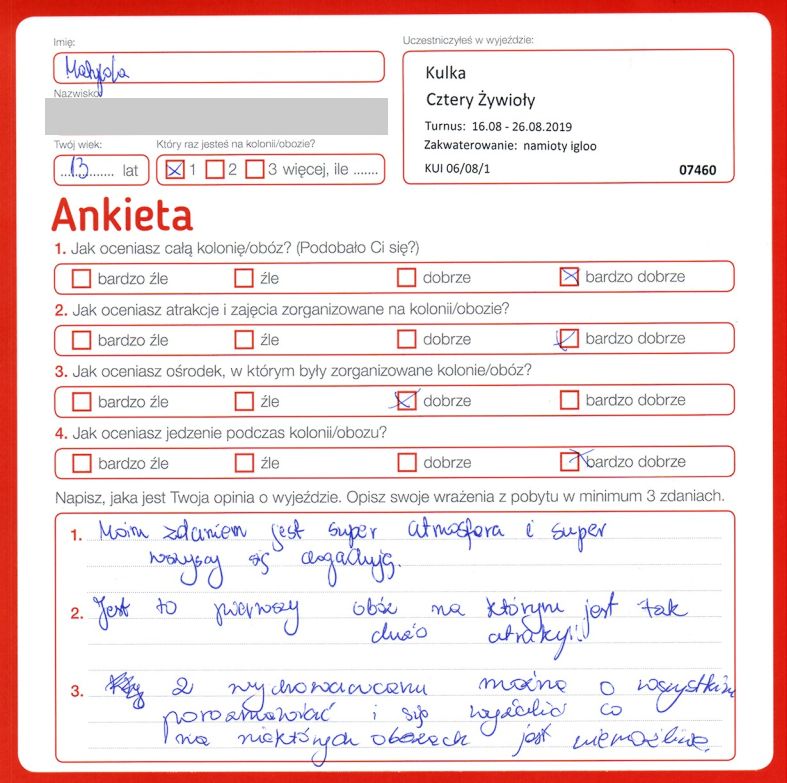 Imię:
Matylda
Nazwisko
Twój wiek:
13 lat
Który raz jesteś na kolonii/obozie?
1 2 3 więcej, ile .......
Uczestniczyłeś w wyjeździe:
Kulka
Cztery Żywioły
Turnus: 16.08 - 26.08.2019
Zakwaterowanie: namioty igloo
KUI 06/08/1 07460
Ankieta
1. Jak oceniasz całą kolonię/obóz? (Podobało Ci się?)
bardzo źle źle dobrze bardzo dobrze
2. Jak oceniasz atrakcje i zajęcia zorganizowane na kolonii/obozie?
bardzo źle źle dobrze bardzo dobrze
3. Jak oceniasz ośrodek, w którym były zorganizowane kolonie/obóz?
bardzo źle źle dobrze bardzo dobrze
4. Jak oceniasz jedzenie podczas kolonii/obozu?
bardzo źle źle dobrze bardzo dobrze
Napisz, jaka jest Twoja opinia o wyjeździe. Opisz swoje wrażenia z pobytu w minimum 3 zdaniach.
1. Moim zdaniem jest super atmosfera i super
wszyscy się dogadują.
2. Jest to pierwszy obóz na którym jest tak
dużo atrakcji!
3. Z wychowawcami można o wszystkim
porozmawiać i się wyżalić co
na niektórych obozach jest niemożliwe.